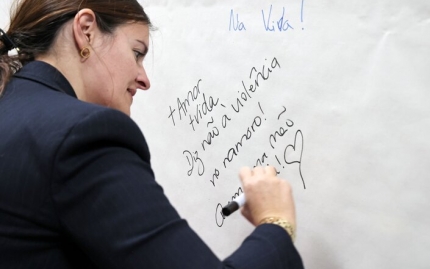 Na Vida!
+Amor
+Vida
Diz não à violência
no namoro!
não
!